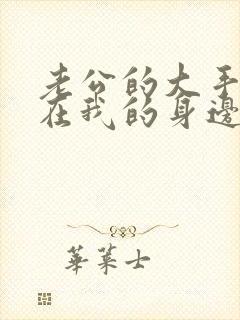 老公的大手
在我的身邊
華菜士